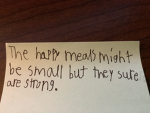 The happy meals might
be small but they sure
are strong.